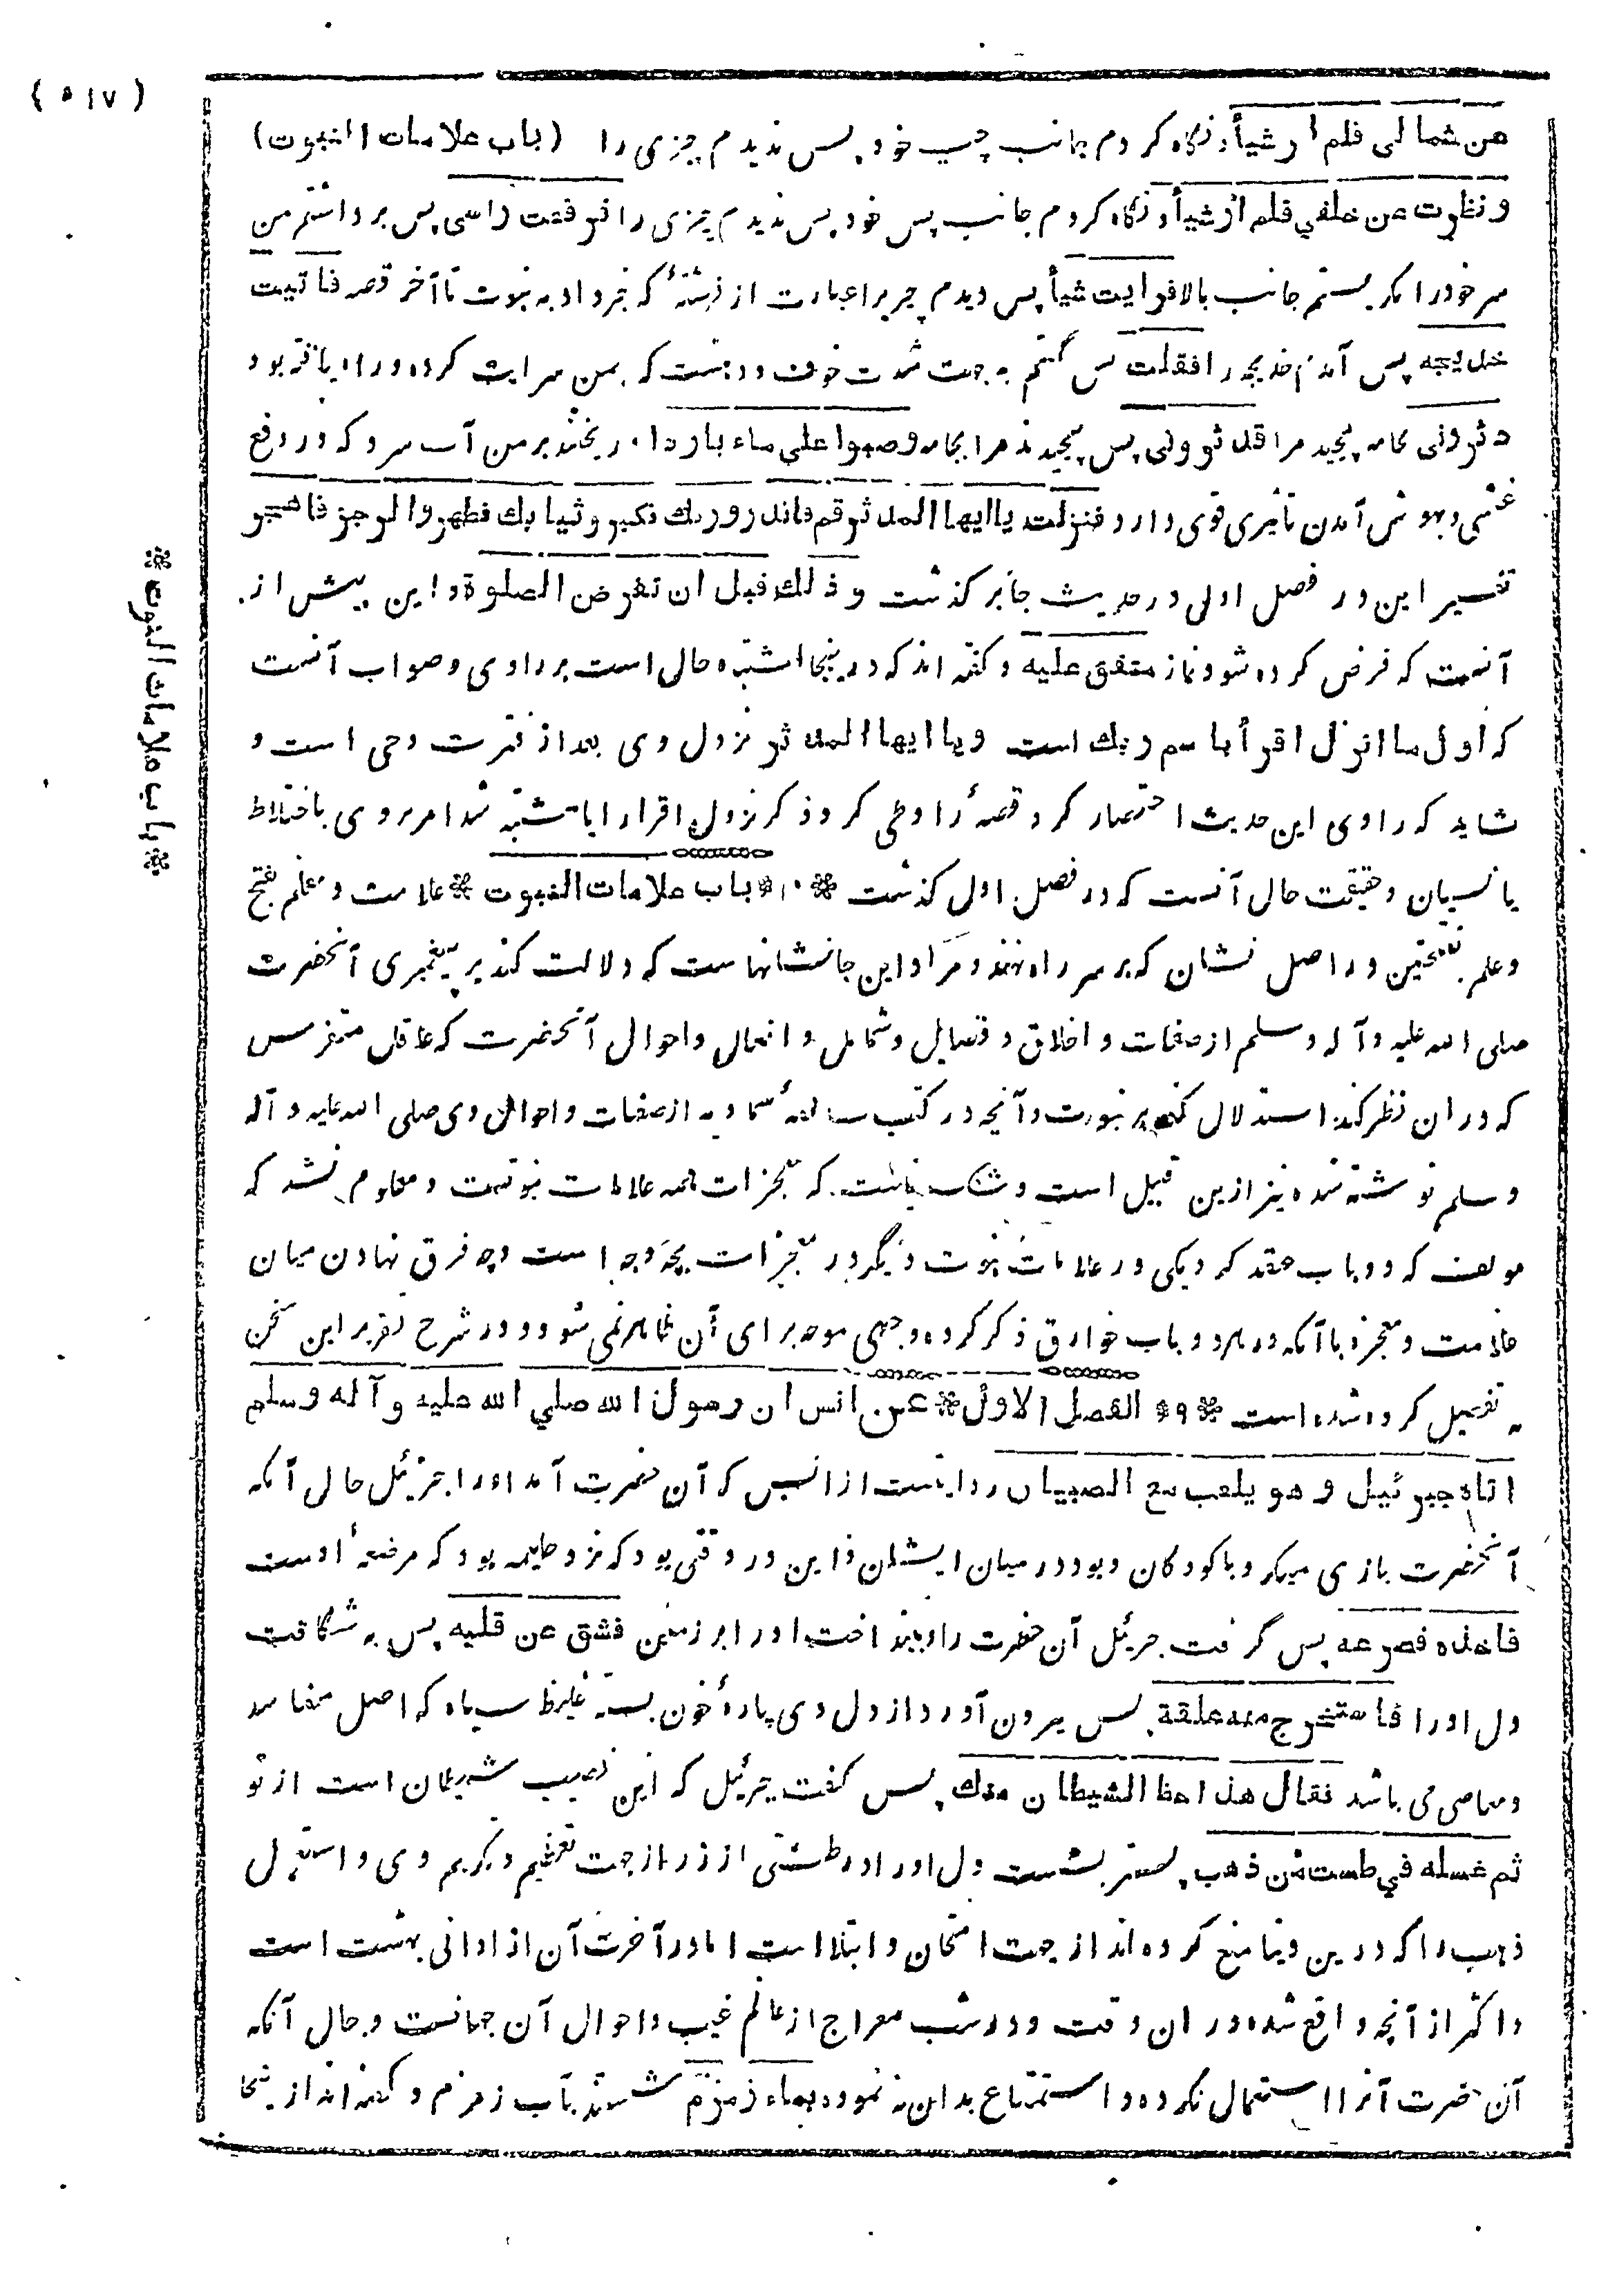 (٥١٧)
عن شمالی فلم ار شیأ و نگاه کردم بجانب چپ خود پس ندیدم چیزی را (باب علامات النبوت)
و نظرت عن خلفي فلم ار شیأ و نگاه کردم جانب پس خود پس ندیدم چیزی را فرفعت راسی پس برداشتم من
سر خود را نگریستم جانب بالا فرایت شیأ پس دیدم چیزیرا عبارت از فرشتهٔ که خبر داد به نبوت تا آخر قصه فاتیت
خدیجه پس آمدم خدیجه را فقلت پس گفتم به جهت شدت خوف و دهشت که بمن سرایت کرده و راه یافته بود
دثرونی بجامه پیچید مرا فدثرونی پس پیچیدند مرا بجامه وصبوا علی ماء باردا و ریختند بر من آب سرد که در دفع
غشی و بهوش آمدن تاثیری قوی دارد فنزلت یا ایها المدثر قم فانذر و ربك فکبر و ثیابك فطهر و الرجز فاهجر
تفسیر این در فصل اول در حدیث جابر گذشت و ذلك قبل ان تفرض الصلوة و این پیش از
آنست که فرض کرده شود نماز متفق علیه و گفته اند که در ینجا اشتباه حالی است بر راوی و صواب آنست
که أول ما انزل اقرأ باسم ربك است و یا ایها المدثر نزول وی بعد از فترت وحی است و
شاید که راوی این حدیث اختصار کرد قصهٔ را وطی کرد ذکر نزول اقرا را یا مشتبه شد امر بروی باختلاط
یا نسیان و حقیقت حال آنست که در فصل اول گذشت * ١٠ * باب علامات النبوت * علامت و معلم بفتح
و علم بفتحتین در اصل نشان که بر سر راه نهند و مراد این جا نشانهاست که دلالت کند بر پیغمبری آنحضرت
صلی الله علیه وآله وسلم از صفات و اخلاق و فضایل و شمایل و افعال و احوال آنحضرت که عاقل متفرس
که در ان نظر کند استدلال کند بر نبوت و آنچه در کتب سالفهٔ سماویه از صفات و احوال وی صلی الله علیه و آله
وسلم نوشته شده نیز ازین قبیل است و شک نیست که معجزات همه علامات نبوتست و معلوم نشد که
مولف که دو باب عقد کرد یکی در علامات نبوت و دیگر در معجزات بچه وجه است و چه فرق نهادن میان
علامت و معجزه با آنکه در هر دو باب خوارق ذکر کرده و وجهی موجه برای آن ظاهر نمی شود و در شرح تقریر این سخن
به تفصیل کرده شده است * ٩ * الفصل الاول * عن انس ان رسول الله صلي الله علیه و آله وسلم
اتاه جبرئیل و هو یلعب مع الصبیان روایتست از انس که آن حضرت آمد اورا جبرئیل حال آنکه
آنحضرت بازی میکرد با کودکان و بود در میان ایشان و این در وقتی بود که نزد حلیمه بود که مرضعهٔ اوست
فاخذه فصرعه پس گرفت جبرئیل آن حضرت را و بینداخت او را بر زمین فشق عن قلبه پس به شگافت
دل اورا فاستخرج منه علقة پس بیرون آورد از دل وی پارهٔ خون بسته غلیظ سیاه که اصل مفاسد
و معاصی می باشد فقال هذا حظ الشیطان منك پس گفت جبرئیل که این نصیب شیطان است از تو
ثم غسله في طست من ذهب پستر بشست دل اورا در طشتی از زر از جهت تعظیم و تکریم وی و استعمال
ذهب را که درین دنیا منع کرده اند از جهت امتحان و ابتلا است اما در آخرت آن از اوانی بهشت است
و اکثر از آنچه واقع شده در ان وقت و در شب معراج از عالم غیب و احوال آن جهانست و حال آنکه
آن حضرت آنرا استعمال نکرده و استمتاع بدان نه نموده بماء زمزم شستند بآب زمزم و گفته اند از ینجا
* باب علامات النبوت *